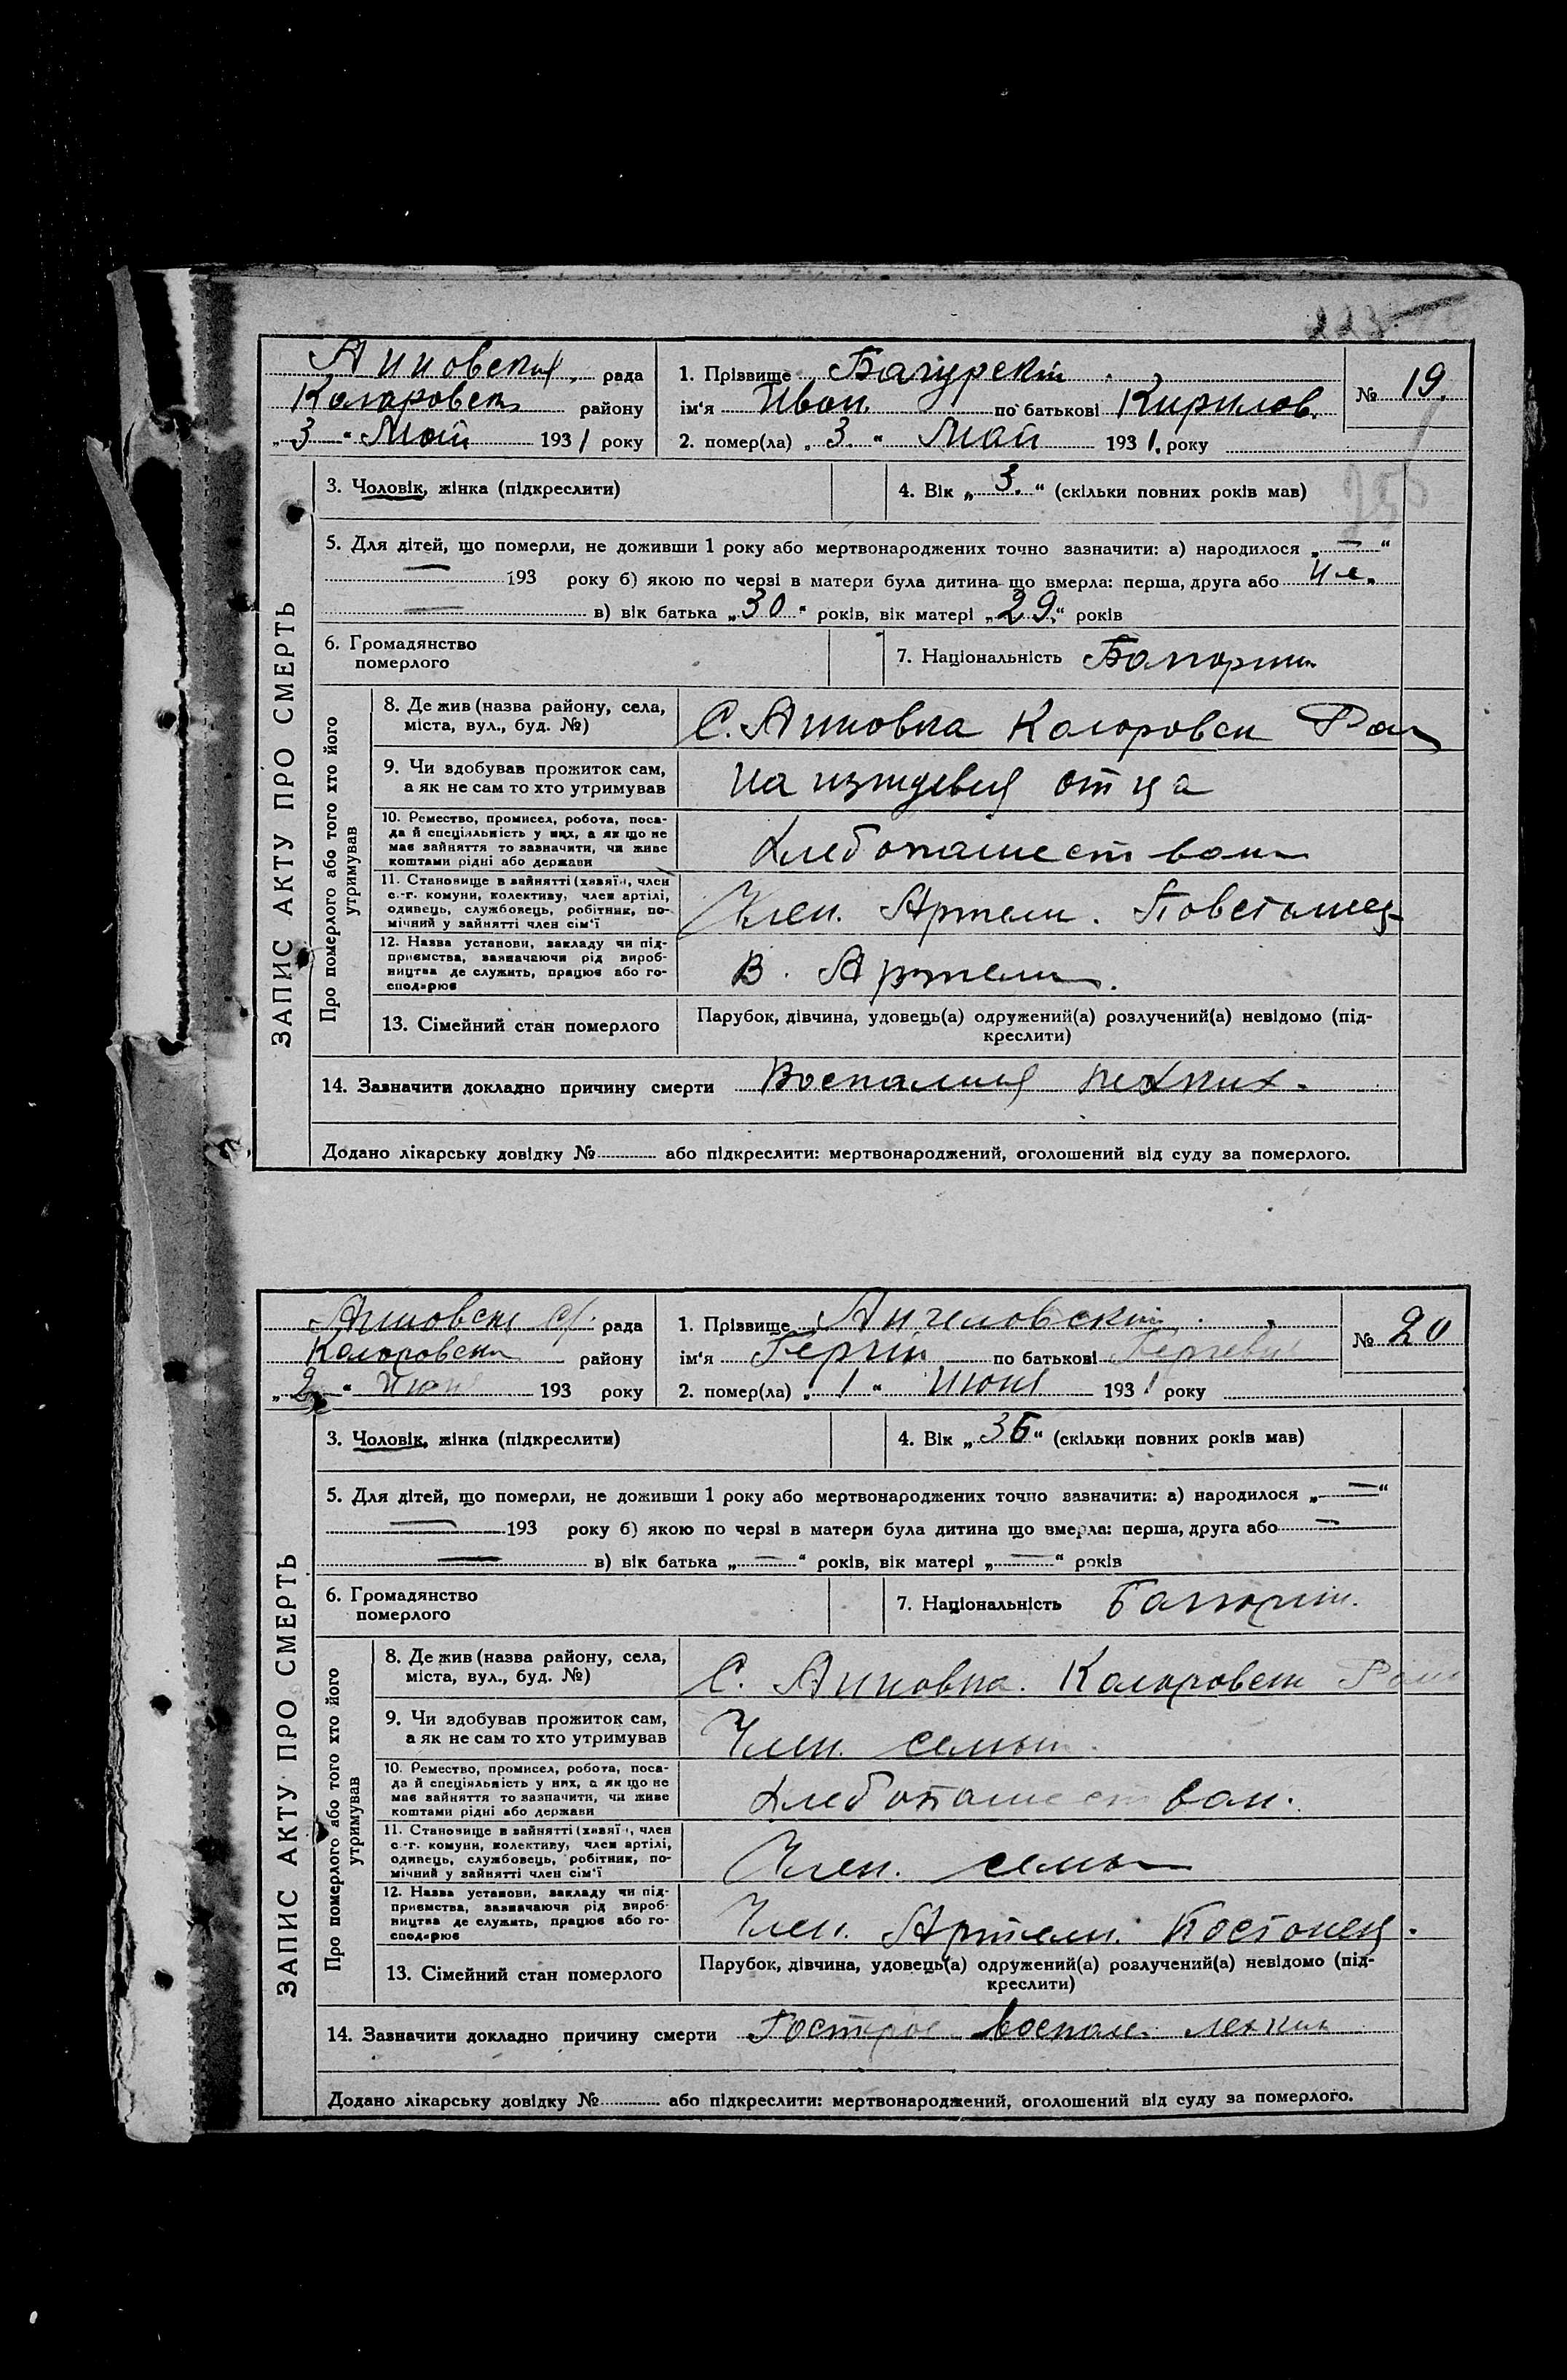 223
Анновский рада
Коларовск району
„3“ Май 1931 року
1. Прізвище Бачурскій
ім'я Иван по батькові Кирилов.
№ 19.
2. помер(ла) „3.“ Май 1931. року
3. Чоловік, жінка (підкреслити)
4. Вік „3.“ (скільки повних років мав)
5. Для дітей, що померли, не доживши 1 року або мертвонароджених точно зазначити: а) народилося „—“
— 193 року б) якою по черзі в матери була дитина що вмерла: перша, друга або
— в) вік батька „30“ років, вік матері „29“ років
6. Громадянство
померлого
7. Національність Болгорин
ЗАПИС АКТУ ПРО СМЕРТЬ
Про померлого або того хто його
утримував
8. Де жив (назва району, села,
міста, вул., буд. №)
С. Анновка Коларовск Рай
9. Чи здобував прожиток сам,
а як не сам то хто утримував
На изждевия отца
10. Ремество, промисел, робота, поса-
да й спеціяльність у них, а як що не
має зайняття то зазначити, чи живе
коштами рідні або держави
Хлебопашествван
11. Становище в зайнятті (хазяїн, член
с.-г. комуни, колективу, член артілі,
одинець, службовець, робітник, по-
мічний у зайнятті член сім'ї
Член. Артели.
12. Назва установи, закладу чи під-
приємства, зазначаючи рід вироб-
ництва де служить, працює або го-
сподарює
В. Артели.
13. Сімейний стан померлого
Парубок, дівчина, удовець(а) одружений(а) розлучений(а) невідомо (під-
креслити)
14. Зазначити докладно причину смерти Воспалия лехких.
Додано лікарську довідку № або підкреслити: мертвонароджений, оголошений від суду за померлого.
Анновск с/. рада
Коларовски району
„2“ Июня 193 року
1. Прізвище Ангеловский
ім'я Гергій по батькові Гергевич
№ 20
2. помер(ла) „1“ Июня 1931 року
3. Чоловік, жінка (підкреслити)
4. Вік „35“ (скільки повних років мав)
5. Для дітей, що померли, не доживши 1 року або мертвонароджених точно зазначити: а) народилося „—“
— 193 року б) якою по черзі в матери була дитина що вмерла: перша, друга або —
— в) вік батька „—“ років, вік матері „—“ років
6. Громадянство
померлого
7. Національність Болгорин.
ЗАПИС АКТУ ПРО СМЕРТЬ
Про померлого або того хто його
утримував
8. Де жив (назва району, села,
міста, вул., буд. №)
С. Анновка. Коларовск Рай
9. Чи здобував прожиток сам,
а як не сам то хто утримував
Член. семьи.
10. Ремество, промисел, робота, поса-
да й спеціяльність у них, а як що не
має зайняття то зазначити, чи живе
коштами рідні або держави
Хлебопашествван.
11. Становище в зайнятті (хазяїн, член
с.-г. комуни, колективу, член артілі,
одинець, службовець, робітник, по-
мічний у зайнятті член сім'ї
Член. семьи
12. Назва установи, закладу чи під-
приємства, зазначаючи рід вироб-
ництва де служить, працює або го-
сподарює
Член. Артели.
13. Сімейний стан померлого
Парубок, дівчина, удовець(а) одружений(а) розлучений(а) невідомо (під-
креслити)
14. Зазначити докладно причину смерти Гострое воспале. лехких
Додано лікарську довідку № або підкреслити: мертвонароджений, оголошений від суду за померлого.